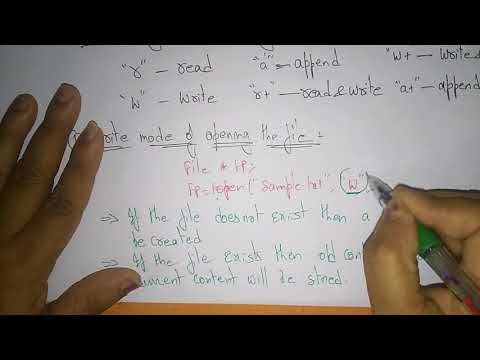 "r" — read "a" — append "w+ — write &
"w" — write "r+" — read & write "a+" — append
write mode of opening the file :
File * FP;
FP = fopen("Sample.txt", "w")
⇒ If the file does not exist then a
be created
⇒ If the file exists then old con
content will be stored.